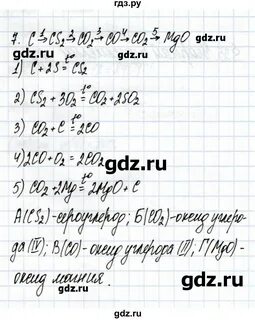 7. C →¹ CS₂ →² CO₂ →³ CO →⁴ CO₂ →⁵ MgO
gdz.ru
1) C + 2S =t° CS₂
gdz.ru
2) CS₂ + 3O₂ =t° CO₂ + 2SO₂
3) CO₂ + C =t° 2CO
gdz.ru gdz.ru
4) 2CO + O₂ = 2CO₂
5) CO₂ + 2Mg =t° 2MgO + C
gdz.ru
А(CS₂) - сероуглерод; Б(CO₂) - оксид углеро-
да (IV); В(CO) - оксид углерода (II); Г(MgO) -
оксид магния.
gdz.ru gdz.ru